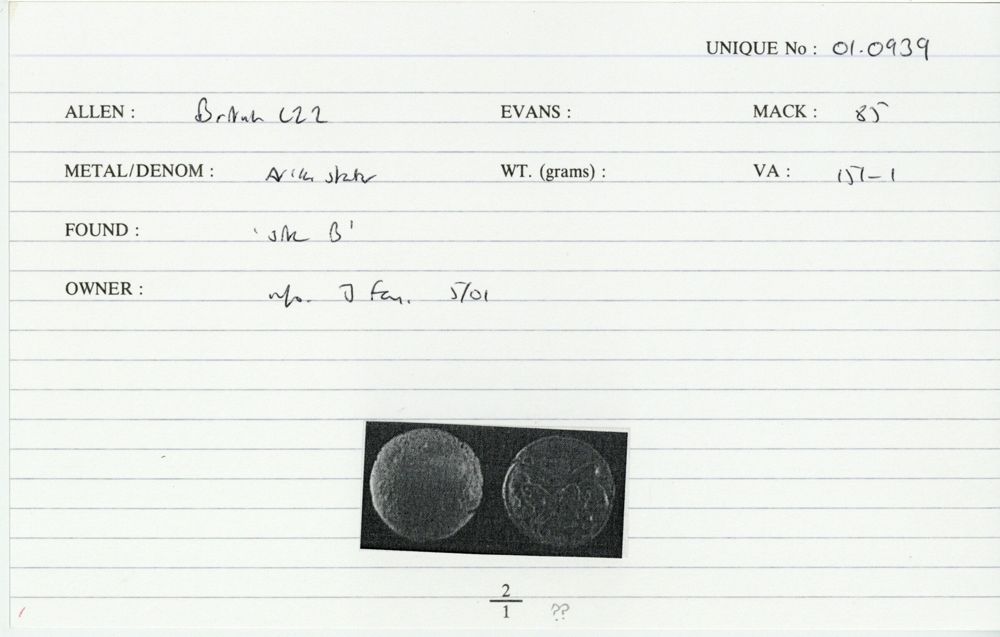 UNIQUE No : 01.0939
ALLEN : British L22 EVANS : MACK : 85
METAL/DENOM : stater WT. (grams) : VA : 151-1
FOUND : 'site B'
OWNER : info. J 5/01
2
1 ??